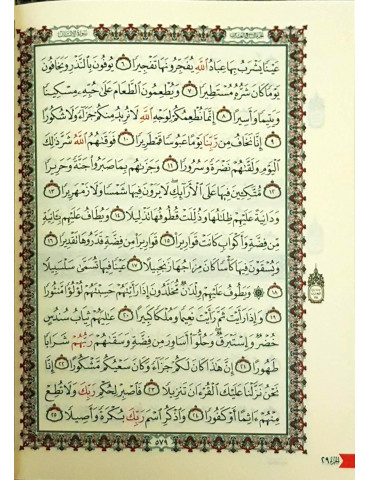 سورة الإنسان
الجزء التاسع والعشرون
عَيْنًا يَشْرَبُ بِهَا عِبَادُ اللَّهِ يُفَجِّرُونَهَا تَفْجِيرًا ٦ يُوفُونَ بِالنَّذْرِ وَيَخَافُونَ
يَوْمًا كَانَ شَرُّهُ مُسْتَطِيرًا ٧ وَيُطْعِمُونَ الطَّعَامَ عَلَىٰ حُبِّهِ مِسْكِينًا
وَيَتِيمًا وَأَسِيرًا ٨ إِنَّمَا نُطْعِمُكُمْ لِوَجْهِ اللَّهِ لَا نُرِيدُ مِنكُمْ جَزَاءً وَلَا شُكُورًا
٩ إِنَّا نَخَافُ مِن رَّبِّنَا يَوْمًا عَبُوسًا قَمْطَرِيرًا ١٠ فَوَقَىٰهُمُ اللَّهُ شَرَّ ذَٰلِكَ
الْيَوْمِ وَلَقَّىٰهُمْ نَضْرَةً وَسُرُورًا ١١ وَجَزَىٰهُم بِمَا صَبَرُوا جَنَّةً وَحَرِيرًا
١٢ مُّتَّكِئِينَ فِيهَا عَلَى الْأَرَائِكِ لَا يَرَوْنَ فِيهَا شَمْسًا وَلَا زَمْهَرِيرًا ١٣
وَدَانِيَةً عَلَيْهِمْ ظِلَٰلُهَا وَذُلِّلَتْ قُطُوفُهَا تَذْلِيلًا ١٤ وَيُطَافُ عَلَيْهِم بِـَٔانِيَةٍ
مِّن فِضَّةٍ وَأَكْوَابٍ كَانَتْ قَوَارِيرَا ١٥ قَوَارِيرَا مِن فِضَّةٍ قَدَّرُوهَا تَقْدِيرًا ١٦
وَيُسْقَوْنَ فِيهَا كَأْسًا كَانَ مِزَاجُهَا زَنجَبِيلًا ١٧ عَيْنًا فِيهَا تُسَمَّىٰ سَلْسَبِيلًا
١٨ ۞ وَيَطُوفُ عَلَيْهِمْ وِلْدَٰنٌ مُّخَلَّدُونَ إِذَا رَأَيْتَهُمْ حَسِبْتَهُمْ لُؤْلُؤًا مَّنثُورًا
١٩ وَإِذَا رَأَيْتَ ثَمَّ رَأَيْتَ نَعِيمًا وَمُلْكًا كَبِيرًا ٢٠ عَٰلِيَهُمْ ثِيَابُ سُندُسٍ
خُضْرٌ وَإِسْتَبْرَقٌ وَحُلُّوا أَسَاوِرَ مِن فِضَّةٍ وَسَقَىٰهُمْ رَبُّهُمْ شَرَابًا
طَهُورًا ٢١ إِنَّ هَٰذَا كَانَ لَكُمْ جَزَاءً وَكَانَ سَعْيُكُم مَّشْكُورًا ٢٢ إِنَّا
نَحْنُ نَزَّلْنَا عَلَيْكَ الْقُرْءَانَ تَنزِيلًا ٢٣ فَاصْبِرْ لِحُكْمِ رَبِّكَ وَلَا تُطِعْ
مِنْهُمْ ءَاثِمًا أَوْ كَفُورًا ٢٤ وَاذْكُرِ اسْمَ رَبِّكَ بُكْرَةً وَأَصِيلًا ٢٥
٥٧٩
الجزء ٢٩